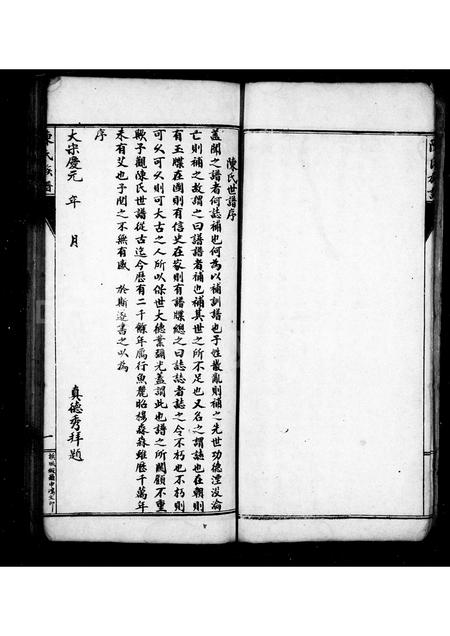 陳氏世譜序
蓋聞之譜者何誌補也何為以補訓譜也子姓散亂則補之先世功德湮沒淪
亡則補之故謂之曰譜譜者補也補其世之所不足也又名之謂誌也在朝則
有玉牒在國則有信史在家則有譜牒總之曰誌誌者誌之令不朽也不朽則
可久可久則可大古之人所以保世大德業彌光蓋謂此也譜之所關顧不重
歟予觀陳氏世譜從古迄今歷有二千餘年鴈行魚麗昭穆森森雖歷千萬年
未有艾也予閱之不無有感於斯遂書之以為
序
大宋慶元 年 月
真德秀拜題
陳氏族譜
一